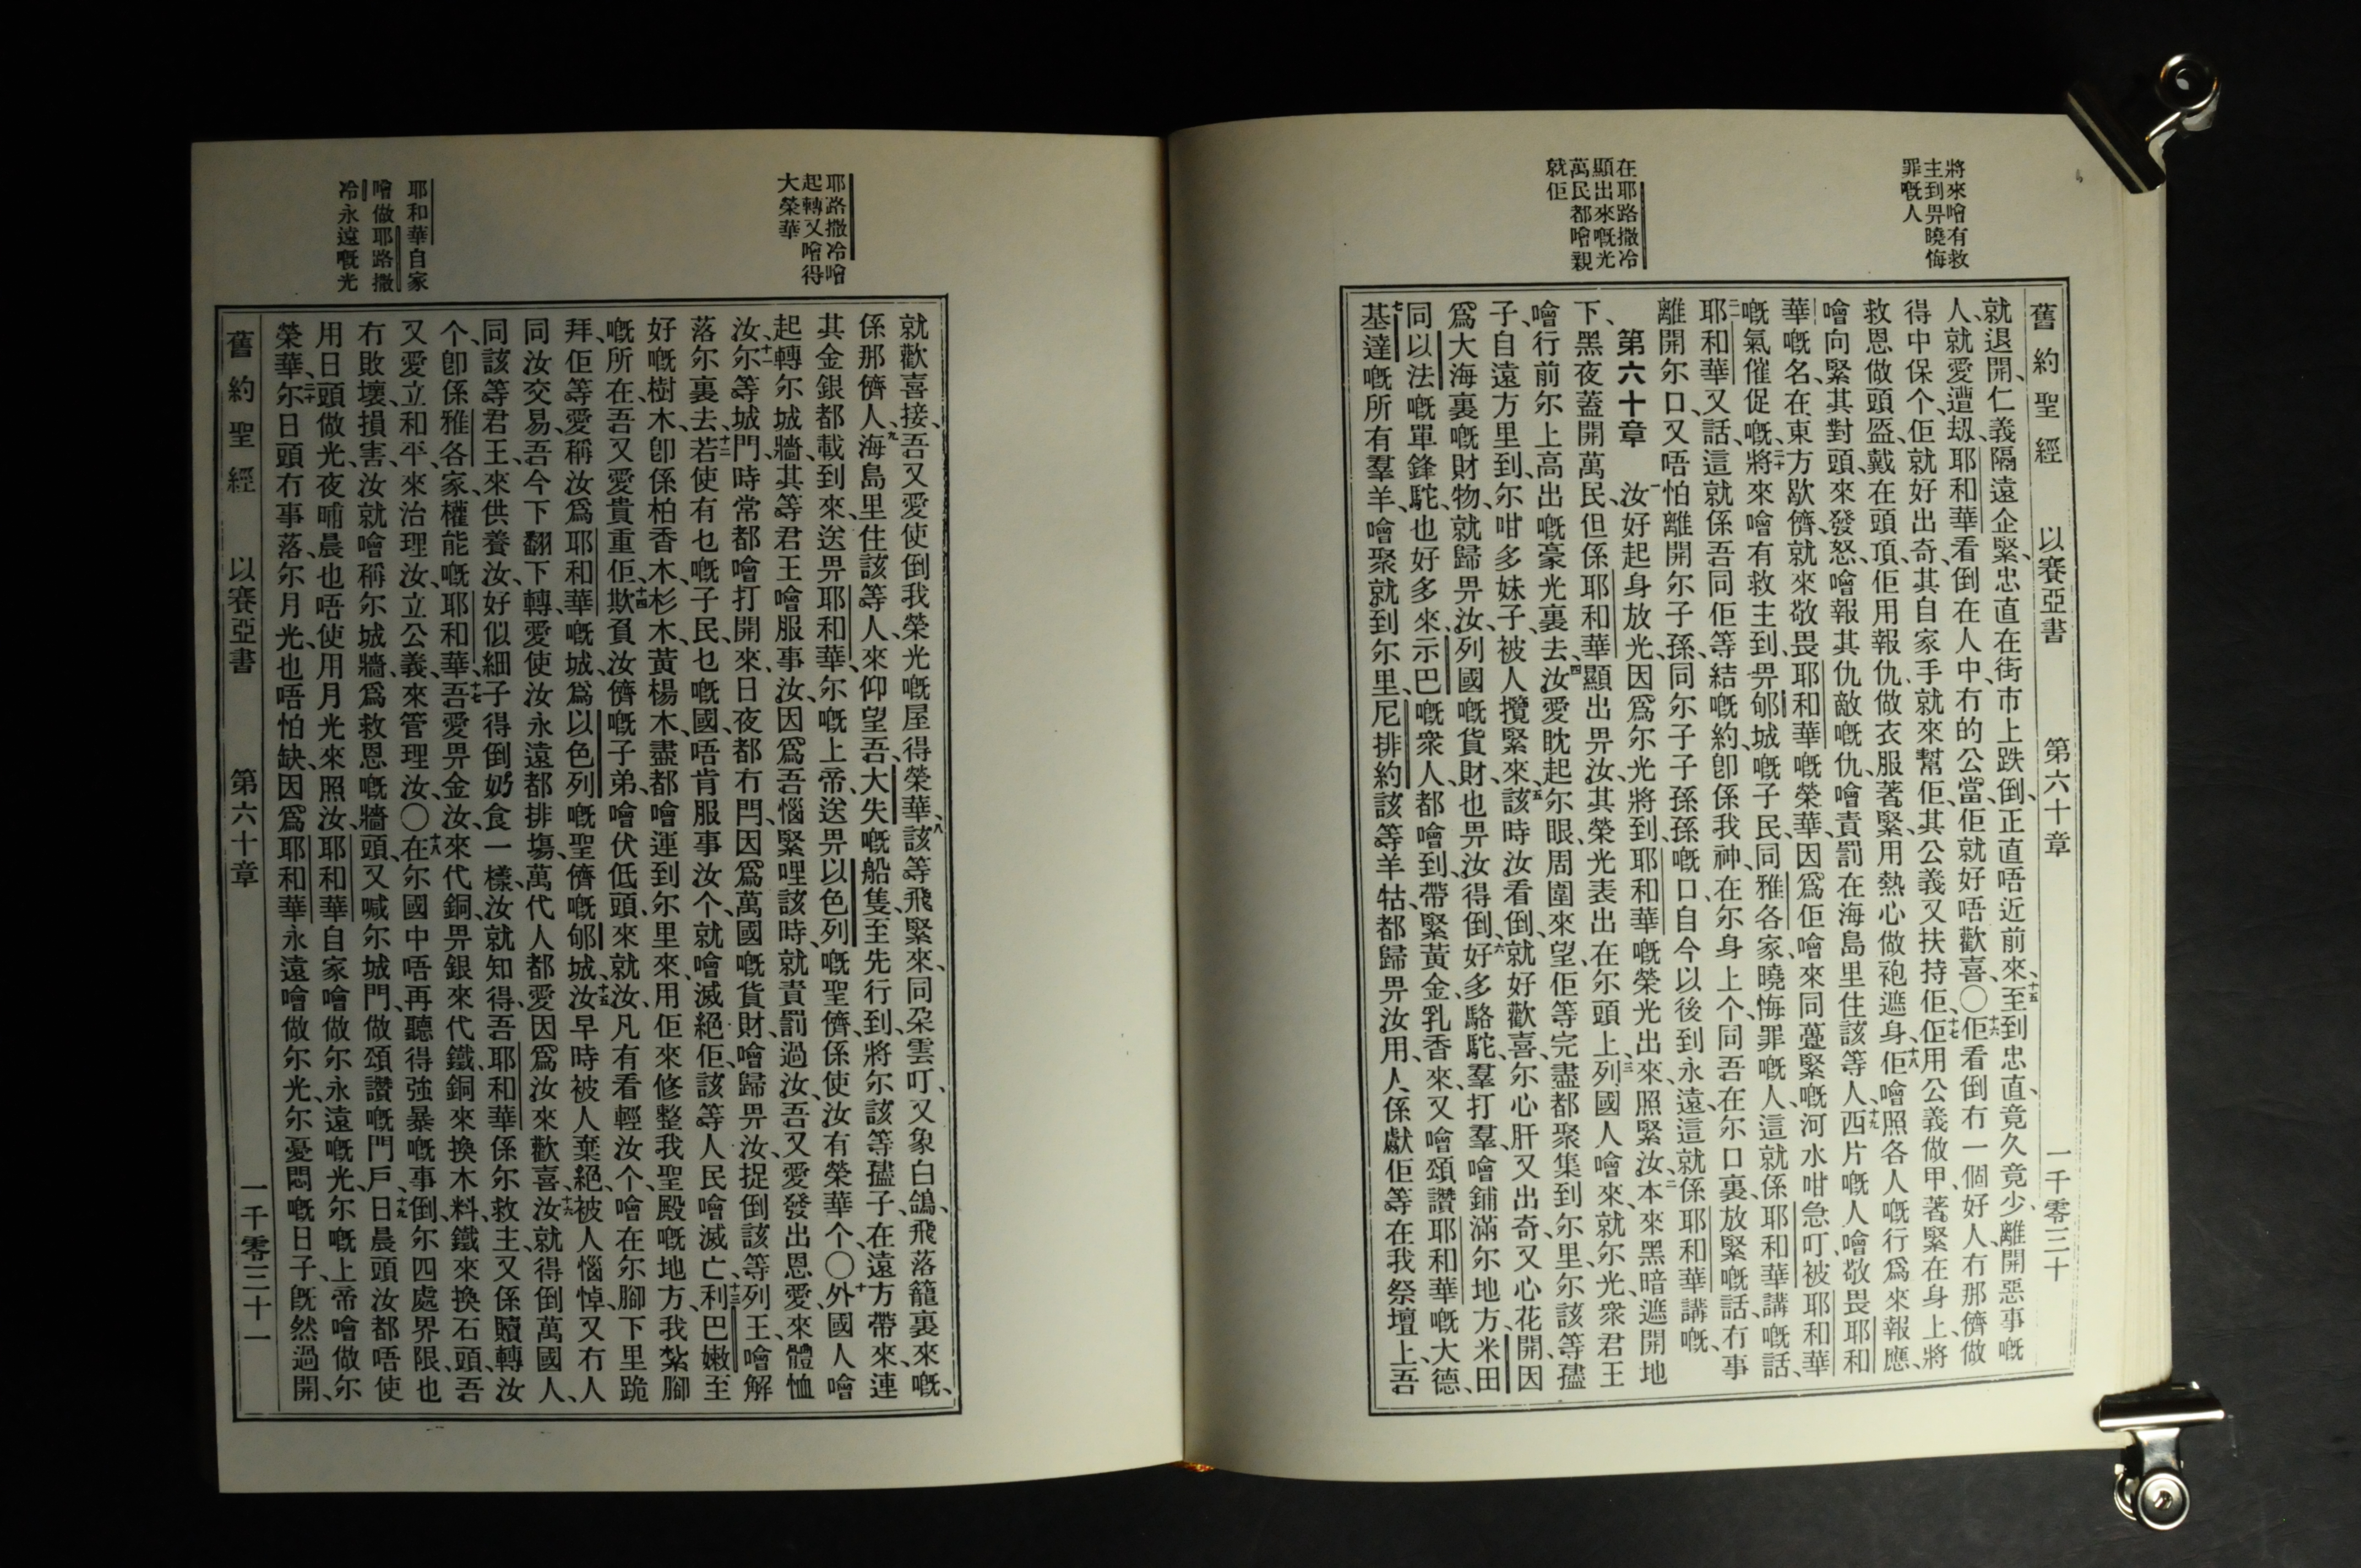 將來噲有救
主到畀曉悔
罪嘅人
在耶路撒冷
顯出來嘅光
萬民都噲親
就佢
舊約聖經 以賽亞書 第六十章 一千零三十
就退開、仁義隔遠企緊、忠直在街市上跌倒、正直唔近前來、十五至到忠直、竟久竟少、離開惡事嘅
人、就愛遭刼、耶和華看倒在人中冇的公當、佢就好唔歡喜〇十六佢看倒冇一個好人、冇那儕做
得中保个、佢就好出奇、其自家手就來幫佢、其公義又扶持佢、十七佢用公義做甲、著緊在身上、將
救恩做頭盔、戴在頭頂、佢用報仇做衣服著緊、用熱心做袍遮身、十八佢噲照各人嘅行爲來報應、
噲向緊其對頭來發怒、噲報其仇敵嘅仇、噲責罰在海島里住該等人、十九西片嘅人噲敬畏耶和
華嘅名、在東方歇儕就來敬畏耶和華嘅榮華、因爲佢噲來同躉緊嘅河水咁急、叮被耶和華
嘅氣催促嘅、二十將來噲有救主到畀郇城嘅子民、同雅各家曉悔罪嘅人、這就係耶和華講嘅話、
二一耶和華又話、這就係吾同佢等結嘅約、卽係我神在尔身上个、同吾在尔口裏放緊嘅話、冇事
離開尔口、又唔怕離開尔子孫、同尔子子孫孫嘅口、自今以後到永遠、這就係耶和華講嘅、
第六十章 一汝好起身放光、因爲尔光將到、耶和華嘅榮光出來照緊汝、二本來黑暗遮開地
下、黑夜蓋開萬民、但係耶和華顯出畀汝、其榮光表出在尔頭上、三列國人噲來就尔光、衆君王
噲行前尔上高出嘅豪光裏去、四汝愛眈起尔眼、周圍來望、佢等完盡都聚集到尔里、尔該等孻
子、自遠方里到、尔咁多妹子、被人攬緊來、五該時汝看倒、就好歡喜、尔心肝又出奇、又心花開、因
爲大海裏嘅財物、就歸畀汝、列國嘅貨財、也畀汝得倒、六好多駱駝、羣打羣、噲鋪滿尔地方、米田
同以法嘅單鋒駝、也好多來、示巴嘅衆人、都噲到、帶緊黃金、乳香來、又噲頌讚耶和華嘅大德、
七基達嘅所有羣羊、噲聚就到尔里、尼排約該等羊牯、都歸畀汝用、人係獻佢等在我祭壇上、吾
耶路撒冷噲
起轉又噲得
大榮華
耶和華自家
噲做耶路撒
冷永遠嘅光
就歡喜接、吾又愛使倒我榮光嘅屋得榮華、八該等飛緊來、同朶雲叮、又象白鴿、飛落籠裏來嘅、
係那儕人、九海島里住該等人、來仰望吾、大失嘅船隻、至先行到、將尔該等孻子、在遠方帶來、連
其金銀都載到來、送畀耶和華、尔嘅上帝、送畀以色列嘅聖儕、係使汝有榮華个、〇十外國人噲
起轉尔城牆、其等君王噲服事汝、因爲吾惱緊哩該時、就責罰過汝、吾又愛發出恩愛、來體恤
汝、十一尔等城門、時常都噲打開來、日夜都冇閂、因爲萬國嘅貨財、噲歸畀汝、捉倒該等列王、噲解
落尔裏去、十二若使有乜嘅子民、乜嘅國、唔肯服事汝个、就噲滅絕佢、該等人民噲滅亡、十三利巴嫩至
好嘅樹木、卽係柏香木、杉木、黃楊木、盡都噲運到尔里來、用佢來修整我聖殿嘅地方、我紮腳
嘅所在、吾又愛貴重佢、十四欺負汝儕嘅子弟、噲伏低頭、來就汝、凡有看輕汝个、噲在尔腳下里跪
拜、佢等愛稱汝爲耶和華嘅城、爲以色列嘅聖儕嘅郇城、十五汝早時被人棄絕、被人惱悼、又冇人
同汝交易、吾今下翻下轉、愛使汝永遠都排塲、萬代人都愛因爲汝來歡喜、十六汝就得倒萬國人、
同該等君王、來供養汝、好似細子得倒奶食一樣、汝就知得、吾耶和華係尔救主、又係贖轉汝
个、卽係雅各家、權能嘅耶和華、十七吾愛畀金汝、來代銅、畀銀來代鐵、銅來換木料、鐵來換石頭、吾
又愛立和平、來治理汝、立公義、來管理汝、〇十八在尔國中、唔再聽得強暴嘅事倒、尔四處界限、也
冇敗壞、損害、汝就噲稱尔城牆、爲救恩嘅牆頭、又喊尔城門、做頌讚嘅門戶、十九日晨頭汝都唔使
用日頭做光、夜晡晨也唔使用月光來照汝、耶和華自家噲做尔永遠嘅光、尔嘅上帝噲做尔
榮華、二十尔日頭冇事落、尔月光也唔怕缺、因爲耶和華永遠噲做尔光、尔憂悶嘅日子、既然過開、
舊約聖經 以賽亞書 第六十章 一千零三十一